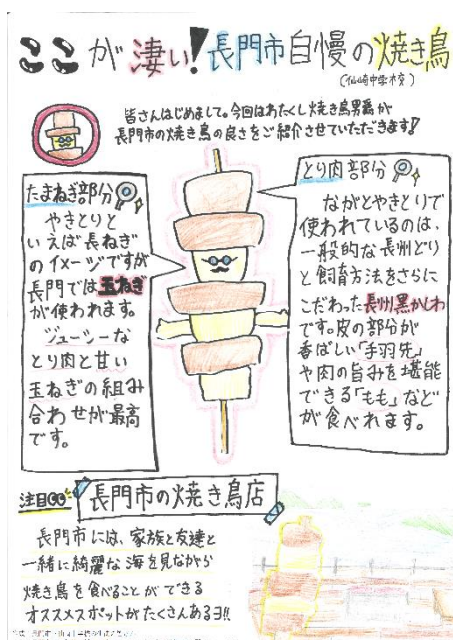 ここが凄い!長門市自慢の焼き鳥
(仙崎中学校)
皆さんはじめまして。今回はわたくし焼き鳥男爵が
長門市の焼き鳥の良さをご紹介させていただきます!
たまねぎ部分
やきとりと
いえば長ねぎ
のイメージですが
長門では玉ねぎ
が使われます。
ジューシーな
とり肉と甘い
玉ねぎの組み
合わせが最高
です。
とり肉部分
ながとやきとりで
使われているのは、
一般的な長州どり
と飼育方法をさらに
こだわった長州黒かしわ
です。皮の部分が
香ばしい「手羽先」
や肉の旨みを堪能
できる「もも」など
が食べれます。
注目
長門市の焼き鳥店
長門市には、家族と友達と
一緒に綺麗な海を見ながら
焼き鳥を食べることができる
オススメスポットがたくさんあるヨ!!